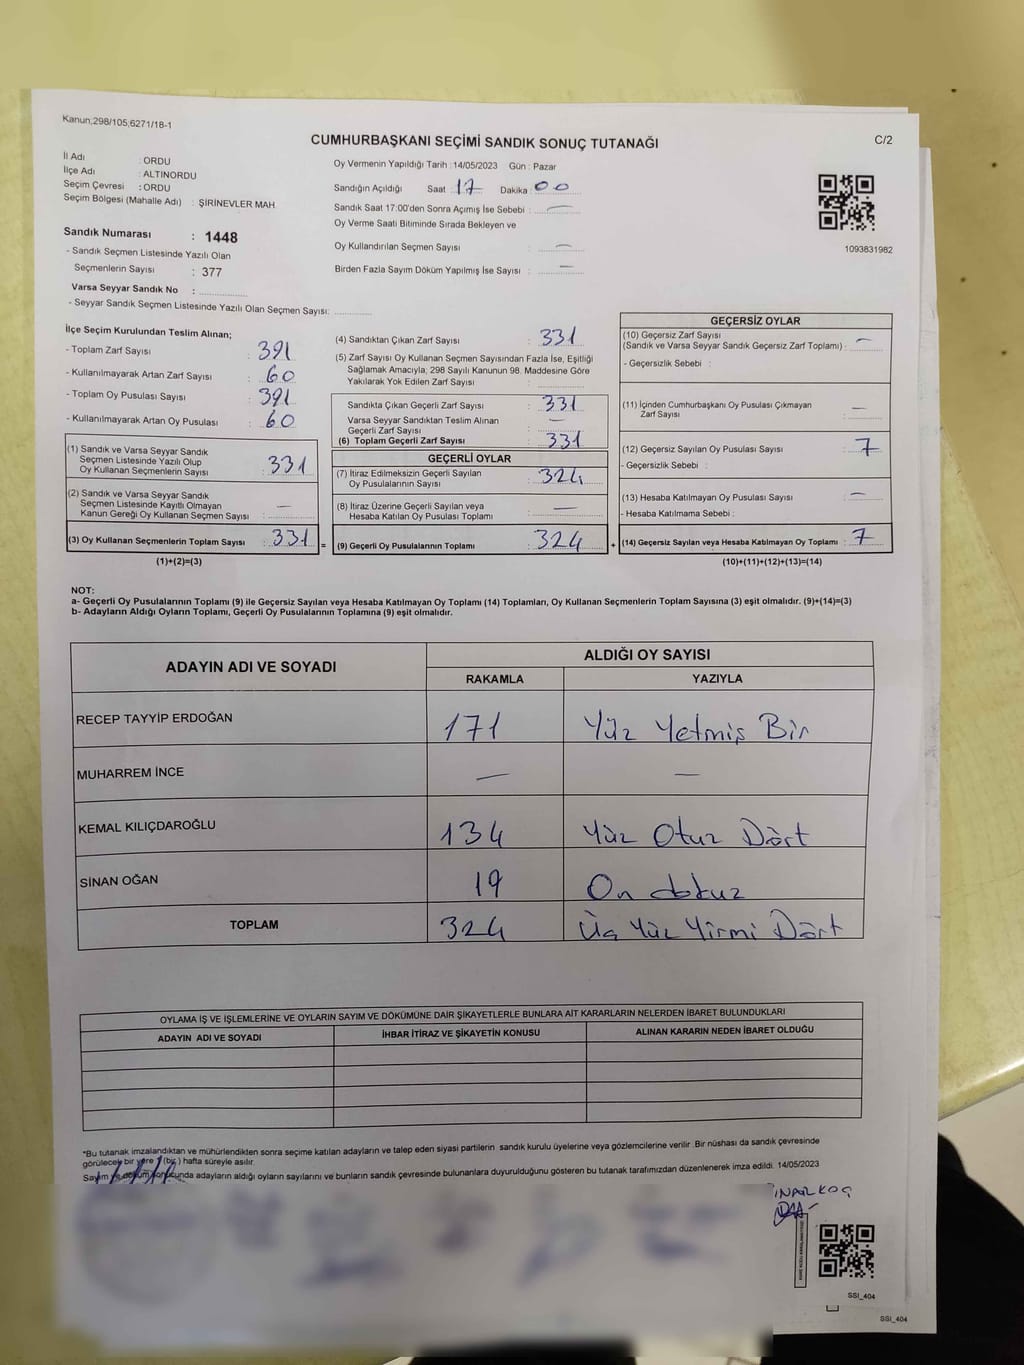 Kanun;298/105;6271/18-1
CUMHURBAŞKANI SEÇİMİ SANDIK SONUÇ TUTANAĞI
C/2
İl Adı : ORDU
İlçe Adı : ALTINORDU
Seçim Çevresi : ORDU
Seçim Bölgesi (Mahalle Adı) : ŞİRİNEVLER MAH.
Sandık Numarası : 1448
- Sandık Seçmen Listesinde Yazılı Olan
Seçmenlerin Sayısı : 377
Varsa Seyyar Sandık No :
- Seyyar Sandık Seçmen Listesinde Yazılı Olan Seçmen Sayısı:
Oy Vermenin Yapıldığı Tarih : 14/05/2023 Gün : Pazar
Sandığın Açıldığı Saat : 17 Dakika : 00
Sandık Saat 17:00'den Sonra Açımış İse Sebebi : —
Oy Verme Saati Bitiminde Sırada Bekleyen ve
Oy Kullandırılan Seçmen Sayısı : —
Birden Fazla Sayım Döküm Yapılmış İse Sayısı : —
1093831982
İlçe Seçim Kurulundan Teslim Alınan;
- Toplam Zarf Sayısı : 391
- Kullanılmayarak Artan Zarf Sayısı : 60
- Toplam Oy Pusulası Sayısı : 391
- Kullanılmayarak Artan Oy Pusulası : 60
(1) Sandık ve Varsa Seyyar Sandık
Seçmen Listesinde Yazılı Olup
Oy Kullanan Seçmenlerin Sayısı : 331
(2) Sandık ve Varsa Seyyar Sandık
Seçmen Listesinde Kayıtlı Olmayan
Kanun Gereği Oy Kullanan Seçmen Sayısı : —
(3) Oy Kullanan Seçmenlerin Toplam Sayısı : 331 =
(1)+(2)=(3)
(4) Sandıktan Çıkan Zarf Sayısı : 331
(5) Zarf Sayısı Oy Kullanan Seçmen Sayısından Fazla İse, Eşitliği
Sağlamak Amacıyla; 298 Sayılı Kanunun 98. Maddesine Göre
Yakılarak Yok Edilen Zarf Sayısı :
Sandıkta Çıkan Geçerli Zarf Sayısı : 331
Varsa Seyyar Sandıktan Teslim Alınan
Geçerli Zarf Sayısı : —
(6) Toplam Geçerli Zarf Sayısı : 331
GEÇERLİ OYLAR
(7) İtiraz Edilmeksizin Geçerli Sayılan
Oy Pusulalarının Sayısı : 324
(8) İtiraz Üzerine Geçerli Sayılan veya
Hesaba Katılan Oy Pusulası Toplamı : —
(9) Geçerli Oy Pusulalarının Toplamı : 324 +
GEÇERSİZ OYLAR
(10) Geçersiz Zarf Sayısı
(Sandık ve Varsa Seyyar Sandık Geçersiz Zarf Toplamı) : —
- Geçersizlik Sebebi :
(11) İçinden Cumhurbaşkanı Oy Pusulası Çıkmayan
Zarf Sayısı : —
(12) Geçersiz Sayılan Oy Pusulası Sayısı : 7
- Geçersizlik Sebebi :
(13) Hesaba Katılmayan Oy Pusulası Sayısı : —
- Hesaba Katılmama Sebebi :
(14) Geçersiz Sayılan veya Hesaba Katılmayan Oy Toplamı : 7
(10)+(11)+(12)+(13)=(14)
NOT:
a- Geçerli Oy Pusulalarının Toplamı (9) ile Geçersiz Sayılan veya Hesaba Katılmayan Oy Toplamı (14) Toplamları, Oy Kullanan Seçmenlerin Toplam Sayısına (3) eşit olmalıdır. (9)+(14)=(3)
b- Adayların Aldığı Oyların Toplamı, Geçerli Oy Pusulalarının Toplamına (9) eşit olmalıdır.
ADAYIN ADI VE SOYADI
ALDIĞI OY SAYISI
RAKAMLA YAZIYLA
RECEP TAYYİP ERDOĞAN 171 Yüz Yetmiş Bir
MUHARREM İNCE — —
KEMAL KILIÇDAROĞLU 134 Yüz Otuz Dört
SİNAN OĞAN 19 On dokuz
TOPLAM 324 Üç Yüz Yirmi Dört
OYLAMA İŞ VE İŞLEMLERİNE VE OYLARIN SAYIM VE DÖKÜMÜNE DAİR ŞİKAYETLERLE BUNLARA AİT KARARLARIN NELERDEN İBARET BULUNDUKLARI
ADAYIN ADI VE SOYADI İHBAR İTİRAZ VE ŞİKAYETİN KONUSU ALINAN KARARIN NEDEN İBARET OLDUĞU
*Bu tutanak imzalandıktan ve mühürlendikten sonra seçime katılan adayların ve talep eden siyasi partilerin sandık kurulu üyelerine veya gözlemcilerine verilir. Bir nüshası da sandık çevresinde
görülecek bir yere 1 (bir) hafta süreyle asılır.
Sayım ve döküm sonucunda adayların aldığı oyların sayılarını ve bunların sandık çevresinde bulunanlara duyurulduğunu gösteren bu tutanak tarafımızdan düzenlenerek imza edildi. 14/05/2023
SSI_404
SSI_404